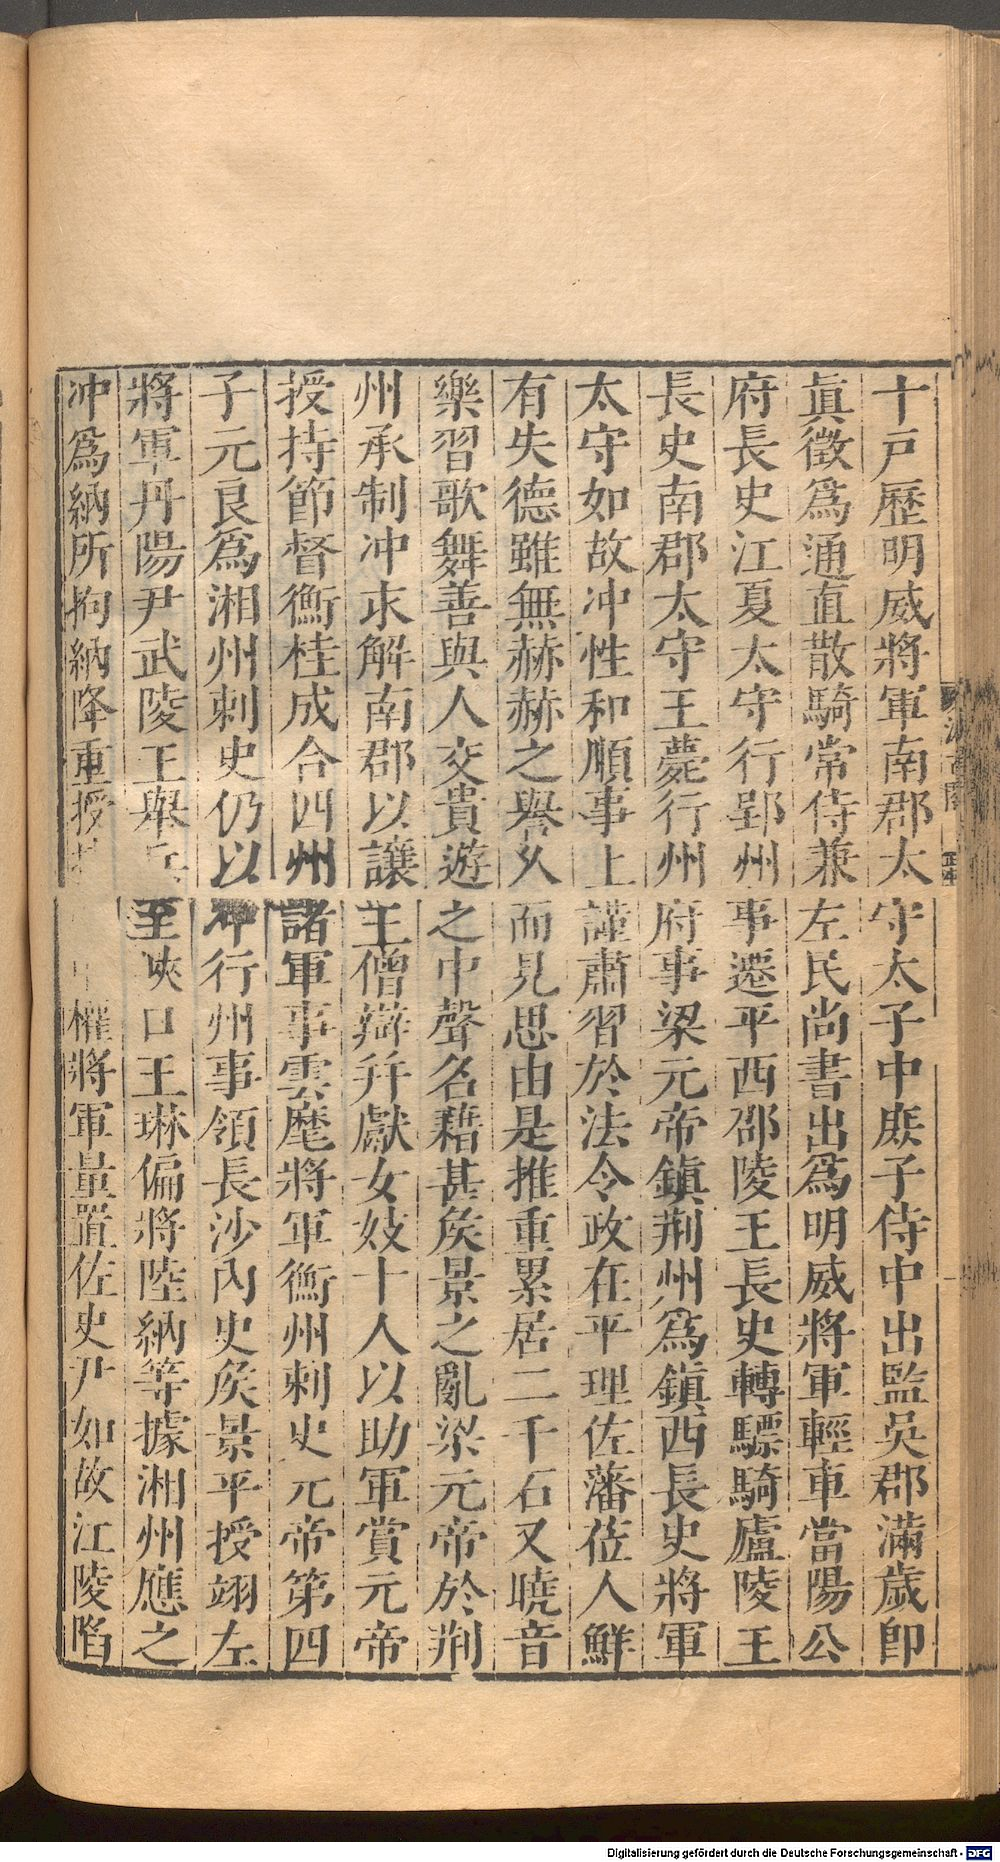 十戸歷明威將軍南郡太守太子中庶子侍中出監吳郡滿歲即
眞徵爲通直散騎常侍兼左民尚書出爲明威將軍輕車當陽公
府長史江夏太守行郢州事遷平西邵陵王長史轉驃騎廬陵王
長史南郡太守王薨行州府事梁元帝鎮荆州爲鎮西長史將軍
太守如故冲性和順事上謹肅習於法令政在平理佐藩莅人鮮
有失德雖無赫赫之譽久而見思由是推重累居二千石又曉音
樂習歌舞善與人交貴遊之中聲名藉甚矦景之亂梁元帝於荆
州承制冲求解南郡以讓王僧辯幷獻女妓十人以助軍賞元帝
授持節督衡桂成合四州諸軍事雲麾將軍衡州刺史元帝第四
子元良爲湘州刺史仍以冲行州事領長沙內史矦景平授翊左
將軍丹陽尹武陵王舉兵至峽口王琳偏將陸納等據湘州應之
冲爲納所拘納降重授 權將軍量置佐史尹如故江陵陷
Digitalisierung gefördert durch die Deutsche Forschungsgemeinschaft - DFG